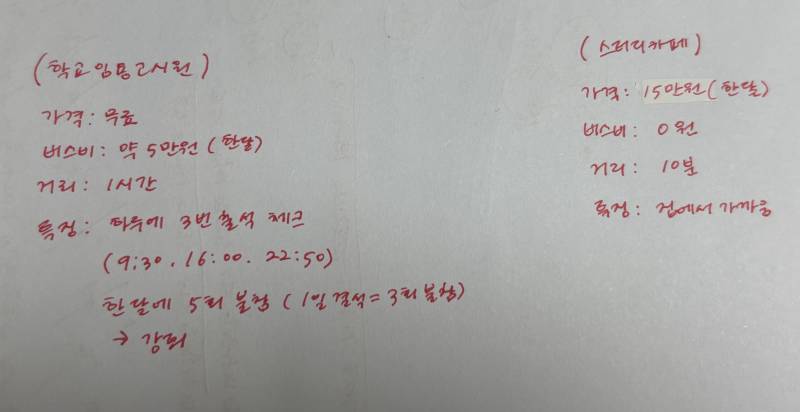 (학교 임용고시원)
가격: 무료
버스비: 약 5만원 (한달)
거리: 1시간
특징: 하루에 3번 출석 체크
(9:30. 16:00. 22:50)
한달에 5회 불참 (1일 결석 = 3회 불참)
→ 강퇴
(스터디카페)
가격: 15만원 (한달)
버스비: 0원
거리: 10분
특징: 집에서 가까움